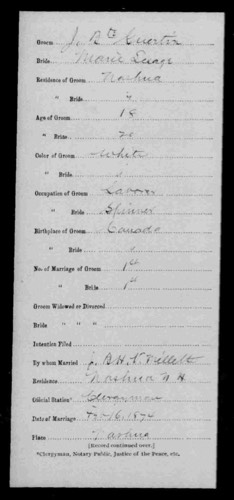 Groom J. Bte
Bride Marie
Residence of Groom Nashua
" Bride "
Age of Groom 18
" Bride 20
Color of Groom White
" Bride "
Occupation of Groom Laborer
" Bride Spinner
Birthplace of Groom Canada
" Bride "
No. of Marriage of Groom 1st
" Bride 1st
Groom Widowed or Divorced
Bride " " "
Intention Filed
By whom Married J. B. H. V. Millett
Residence Nashua N H
Official Station* Clergyman
Date of Marriage 16. 1874
Place Nashua
[Record continued over.]
*Clergyman, Notary Public, Justice of the Peace, etc.